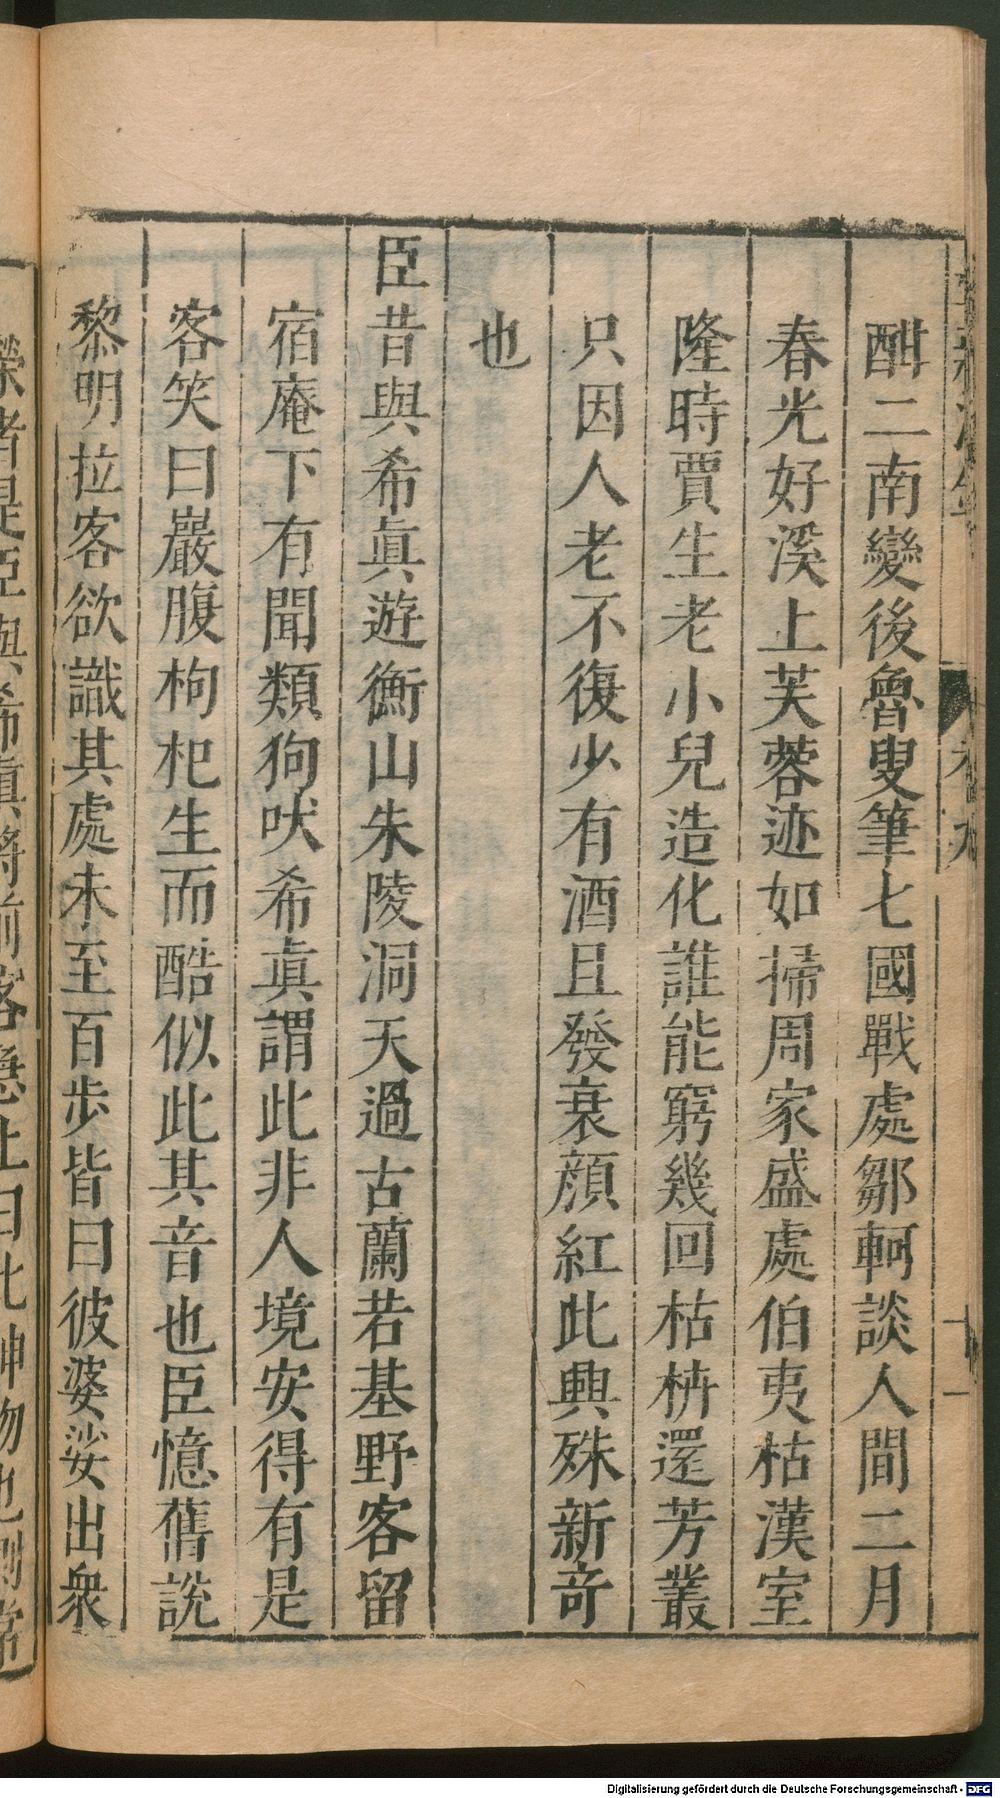 酣二南變後魯叟筆七國戰處鄒軻談人間二月
春光好溪上芙蓉迹如掃周家盛處伯夷枯漢室
隆時賈生老小兒造化誰能窮幾回枯枿還芳叢
只因人老不復少有酒且發衰顔紅此興殊新奇
也
臣昔與希眞遊衡山朱陵洞天過古蘭若基野客留
宿庵下有聞類狗吠希眞謂此非人境安得有是
客笑曰巖腹枸杞生而酷似此其音也臣憶舊說
黎明拉客欲識其處未至百步皆曰彼婆娑出衆
者是臣與希眞將前客急止曰此神物也
Digitalisierung gefördert durch die Deutsche Forschungsgemeinschaft - DFG